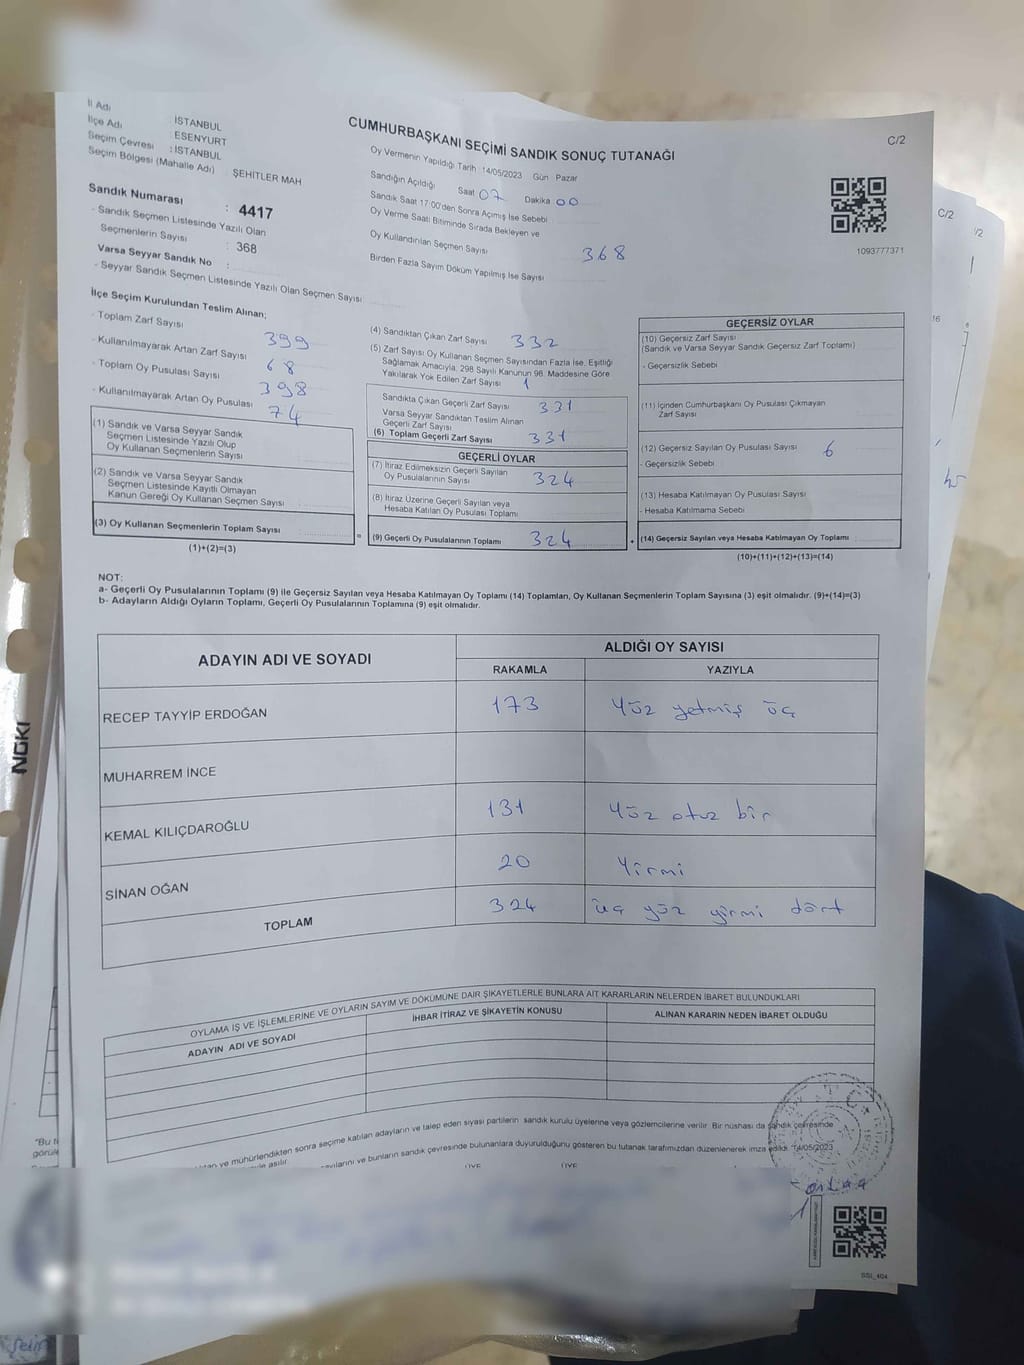 İl Adı : İSTANBUL
İlçe Adı : ESENYURT
Seçim Çevresi : İSTANBUL
Seçim Bölgesi (Mahalle Adı) : ŞEHİTLER MAH
Sandık Numarası : 4417
- Sandık Seçmen Listesinde Yazılı Olan
Seçmenlerin Sayısı : 368
Varsa Seyyar Sandık No :
- Seyyar Sandık Seçmen Listesinde Yazılı Olan Seçmen Sayısı
CUMHURBAŞKANI SEÇİMİ SANDIK SONUÇ TUTANAĞI
C/2
Oy Vermenin Yapıldığı Tarih : 14/05/2023 Gün Pazar
Sandığın Açıldığı Saat 07 Dakika 00
Sandık Saat 17:00'den Sonra Açımış İse Sebebi
Oy Verme Saati Bitiminde Sırada Bekleyen ve
Oy Kullandırılan Seçmen Sayısı 368
Birden Fazla Sayım Döküm Yapılmış İse Sayısı
1093777371
C/2
/2
İlçe Seçim Kurulundan Teslim Alınan;
- Toplam Zarf Sayısı 399
- Kullanılmayarak Artan Zarf Sayısı 68
- Toplam Oy Pusulası Sayısı 398
- Kullanılmayarak Artan Oy Pusulası 74
(1) Sandık ve Varsa Seyyar Sandık
Seçmen Listesinde Yazılı Olup
Oy Kullanan Seçmenlerin Sayısı
(2) Sandık ve Varsa Seyyar Sandık
Seçmen Listesinde Kayıtlı Olmayan
Kanun Gereği Oy Kullanan Seçmen Sayısı
(3) Oy Kullanan Seçmenlerin Toplam Sayısı
(1)+(2)=(3)
=
(4) Sandıktan Çıkan Zarf Sayısı 332
(5) Zarf Sayısı Oy Kullanan Seçmen Sayısından Fazla İse, Eşitliği
Sağlamak Amacıyla, 298 Sayılı Kanunun 98. Maddesine Göre
Yakılarak Yok Edilen Zarf Sayısı 1
Sandıkta Çıkan Geçerli Zarf Sayısı 331
Varsa Seyyar Sandıktan Teslim Alınan
Geçerli Zarf Sayısı
(6) Toplam Geçerli Zarf Sayısı 331
GEÇERLİ OYLAR
(7) İtiraz Edilmeksizin Geçerli Sayılan
Oy Pusulalarının Sayısı 324
(8) İtiraz Üzerine Geçerli Sayılan veya
Hesaba Katılan Oy Pusulası Toplamı
(9) Geçerli Oy Pusulalarının Toplamı 324
+
GEÇERSİZ OYLAR
(10) Geçersiz Zarf Sayısı
(Sandık ve Varsa Seyyar Sandık Geçersiz Zarf Toplamı)
- Geçersizlik Sebebi
(11) İçinden Cumhurbaşkanı Oy Pusulası Çıkmayan
Zarf Sayısı
(12) Geçersiz Sayılan Oy Pusulası Sayısı 6
- Geçersizlik Sebebi
(13) Hesaba Katılmayan Oy Pusulası Sayısı
- Hesaba Katılmama Sebebi
(14) Geçersiz Sayılan veya Hesaba Katılmayan Oy Toplamı
(10)+(11)+(12)+(13)=(14)
NOT:
a- Geçerli Oy Pusulalarının Toplamı (9) ile Geçersiz Sayılan veya Hesaba Katılmayan Oy Toplamı (14) Toplamları, Oy Kullanan Seçmenlerin Toplam Sayısına (3) eşit olmalıdır. (9)+(14)=(3)
b- Adayların Aldığı Oyların Toplamı, Geçerli Oy Pusulalarının Toplamına (9) eşit olmalıdır.
ADAYIN ADI VE SOYADI
ALDIĞI OY SAYISI
RAKAMLA YAZIYLA
RECEP TAYYİP ERDOĞAN 173 Yüz yetmiş üç
MUHARREM İNCE
KEMAL KILIÇDAROĞLU 131 Yüz otuz bir
SİNAN OĞAN 20 Yirmi
TOPLAM 324 üç yüz yirmi dört
OYLAMA İŞ VE İŞLEMLERİNE VE OYLARIN SAYIM VE DÖKÜMÜNE DAİR ŞİKAYETLERLE BUNLARA AİT KARARLARIN NELERDEN İBARET BULUNDUKLARI
ADAYIN ADI VE SOYADI
İHBAR İTİRAZ VE ŞİKAYETİN KONUSU
ALINAN KARARIN NEDEN İBARET OLDUĞU
ve mühürlendikten sonra seçime katılan adayların ve talep eden siyasi partilerin sandık kurulu üyelerine veya gözlemcilerine verilir. Bir nüshası da sandık çevresinde
asılır.
ve bunların sandık çevresinde bulunanlara duyurulduğunu gösteren bu tutanak tarafımızdan düzenlenerek imza edildi. 14/05/2023
ÜYE ÜYE
SSI_404
"Bu